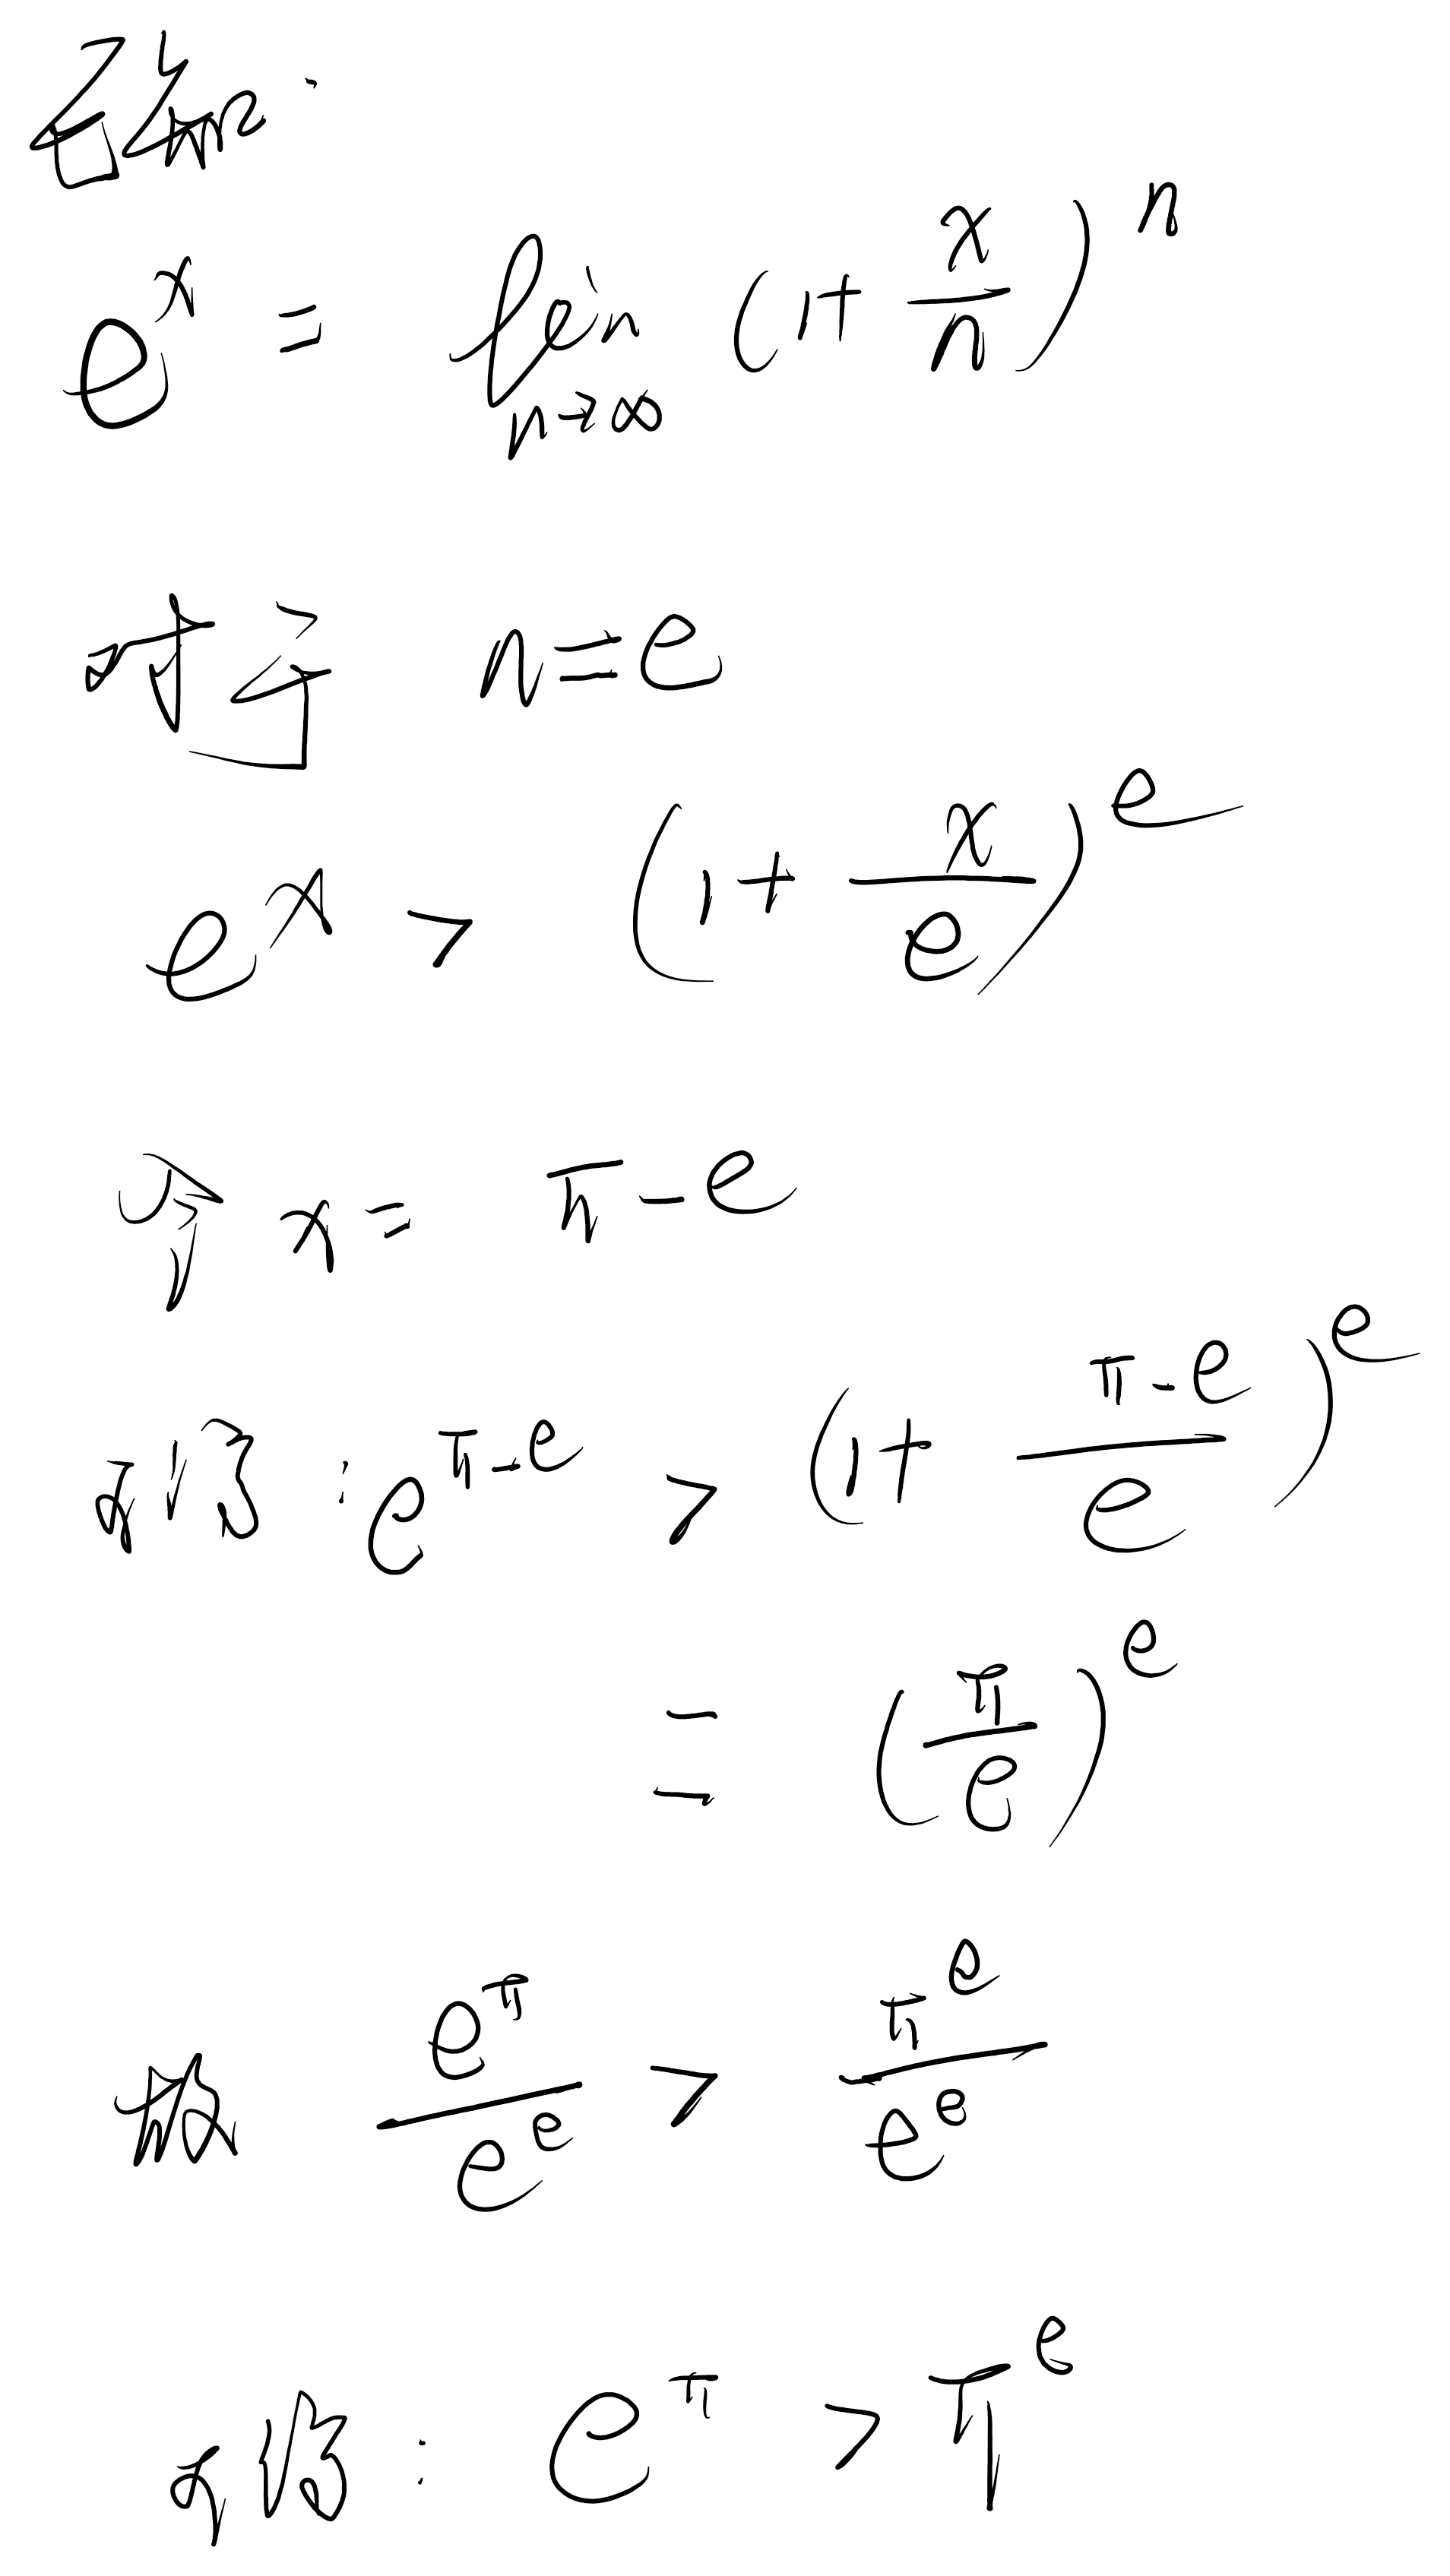 已知:
e^x = lim_{n→∞} (1+ x/n)^n
对于 n=e
e^x > (1+ x/e)^e
令 x= π-e
可得: e^{π-e} > (1+ (π-e)/e)^e
= (π/e)^e
故 e^π/e^e > π^e/e^e
可得: e^π > π^e